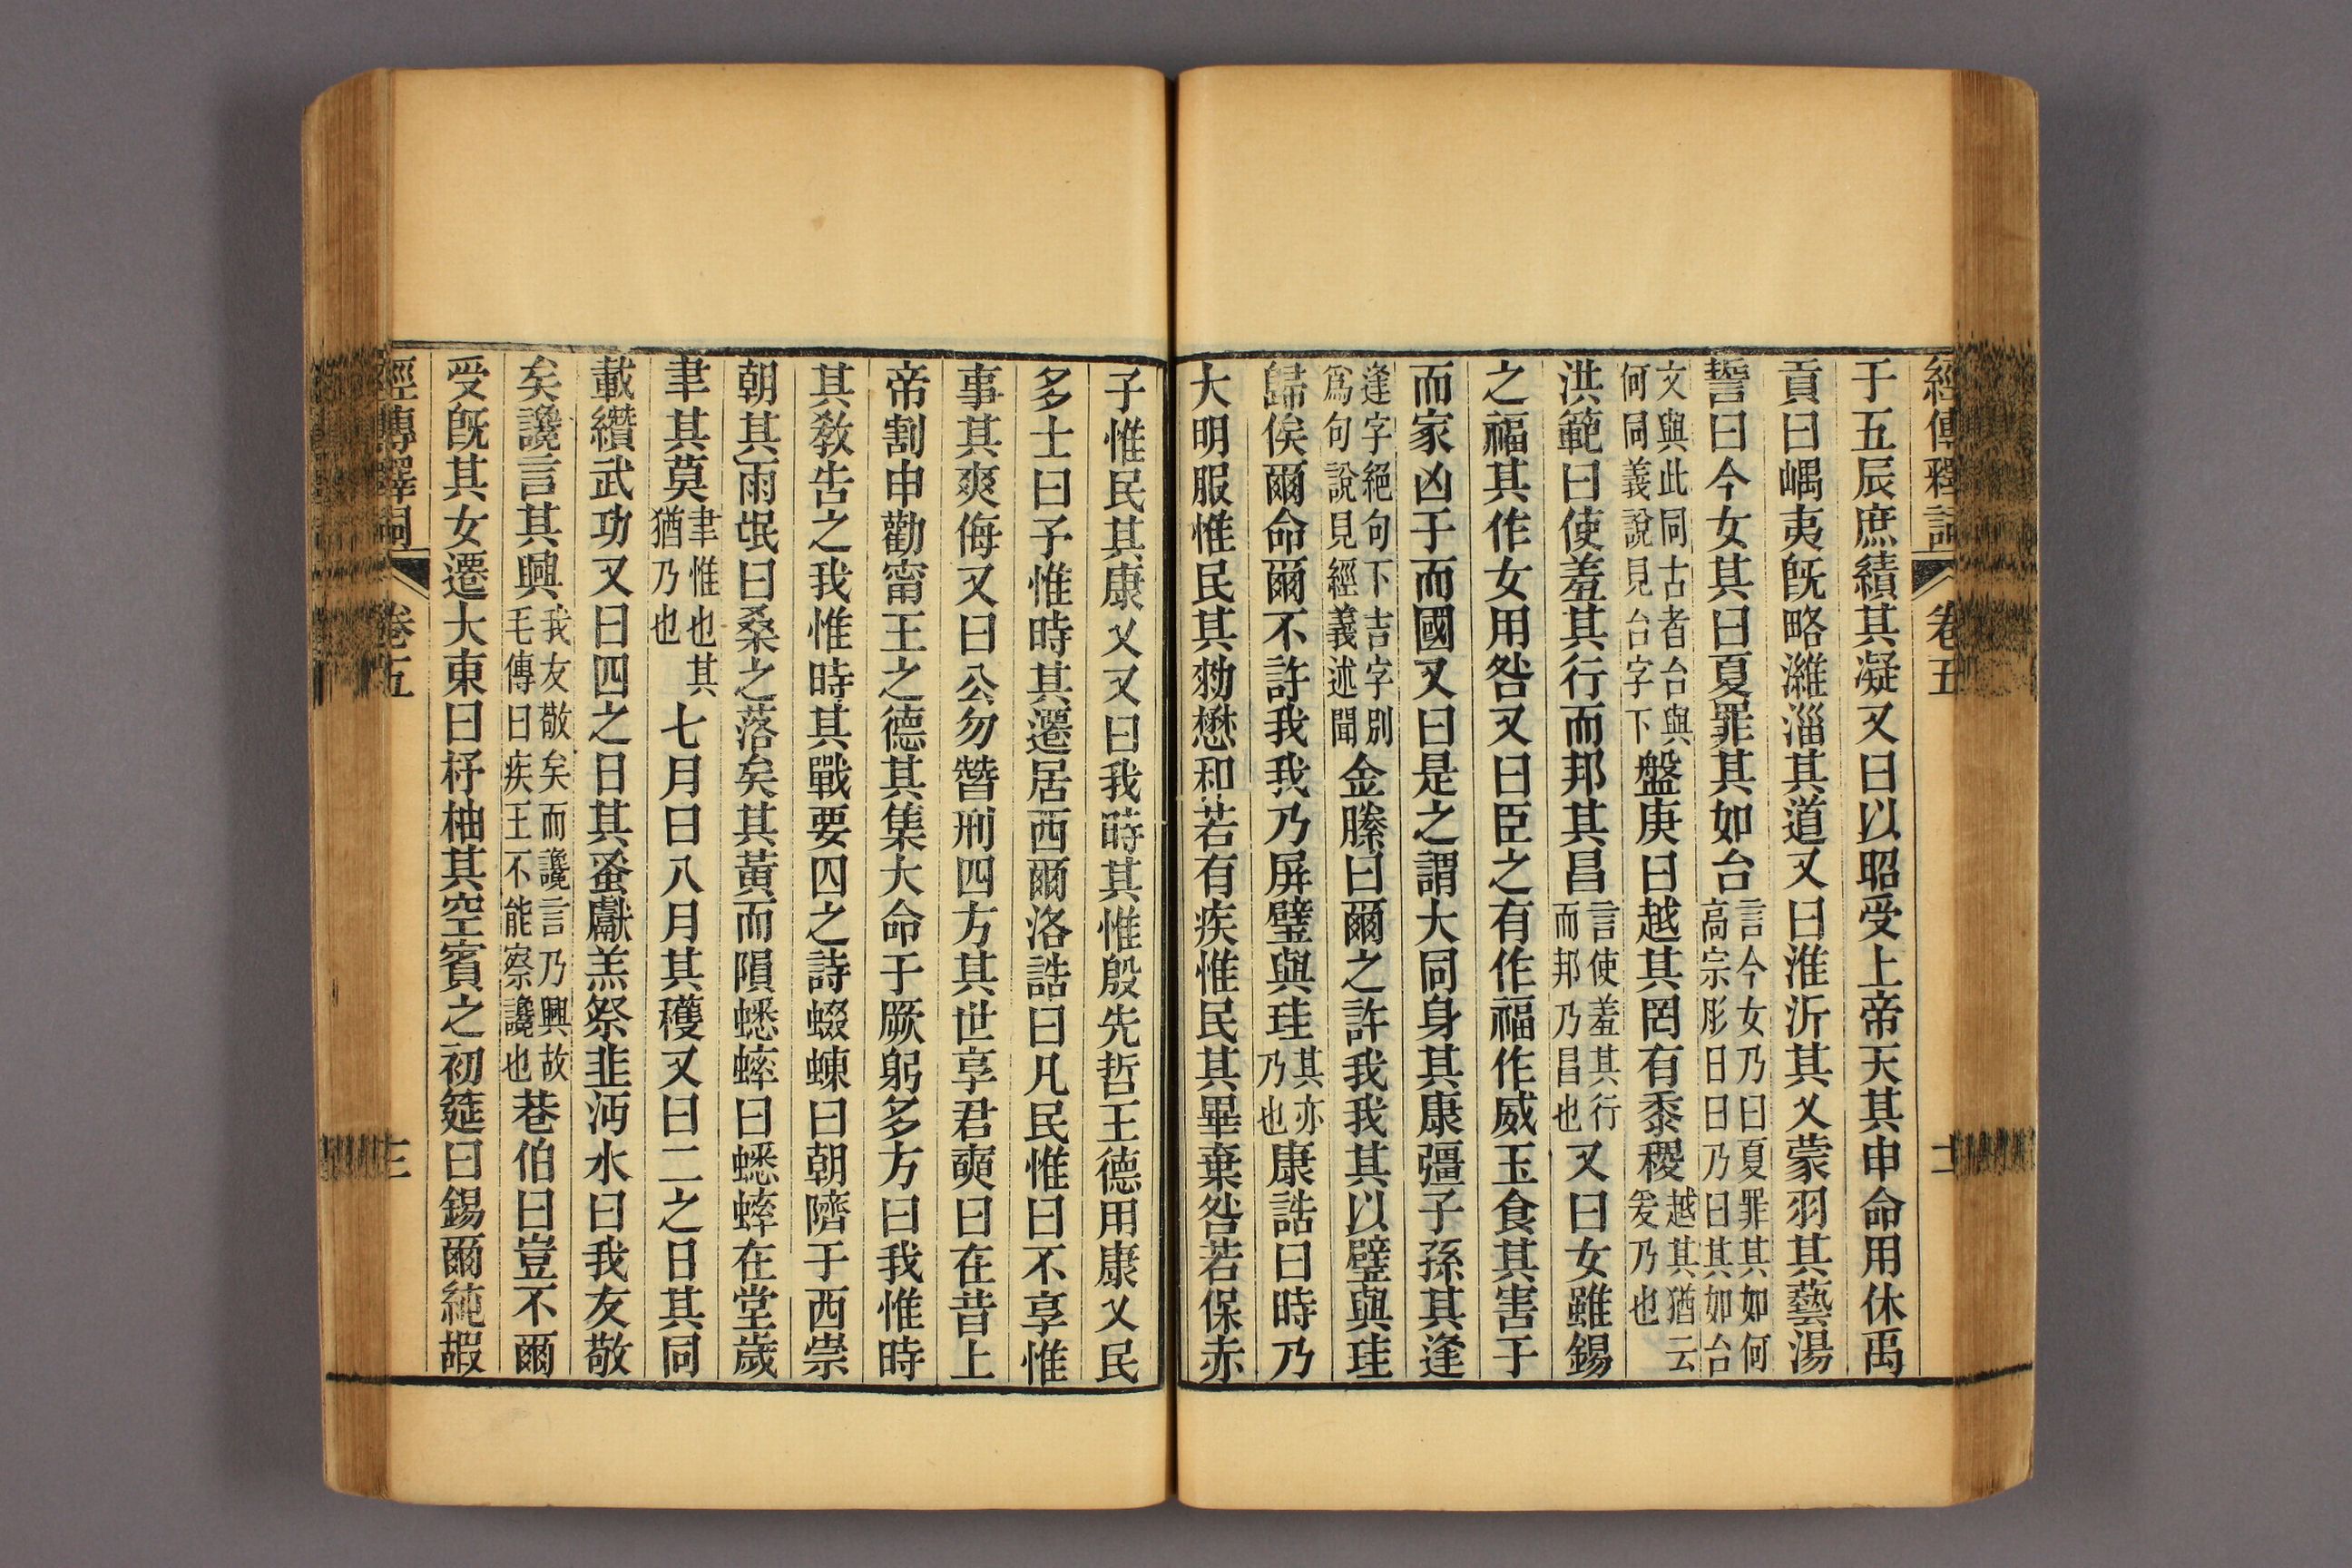 經傳釋詞 卷五
于五辰庶績其凝又曰以昭受上帝天其申命用休禹
貢曰嵎夷旣略濰淄其道又曰淮沂其乂蒙羽其藝湯
誓曰今女其曰夏罪其如台言今女乃曰夏罪其如何高宗肜日曰乃曰其如台
文與此同古者台與何同義說見台字下盤庚曰越其罔有黍稷越其猶云爰乃也
洪範曰使羞其行而邦其昌言使羞其行而邦乃昌也又曰女雖錫
之福其作女用咎又曰臣之有作福作威玉食其害于
而家凶于而國又曰是之謂大同身其康彊子孫其逢
逢字絕句下吉字別爲句說見經義述聞金縢曰爾之許我我其以璧與珪
歸俟爾命爾不許我我乃屏璧與珪其亦乃也康誥曰時乃
大明服惟民其勑懋和若有疾惟民其畢棄咎若保赤
子惟民其康乂又曰我時其惟殷先哲王德用康乂民
多士曰予惟時其遷居西爾洛誥曰凡民惟曰不享惟
事其爽侮又曰公勿替刑四方其世享君奭曰在昔上
帝割申勸甯王之德其集大命于厥躬多方曰我惟時
其敎告之我惟時其戰要囚之詩蝃蝀曰朝隮于西崇
朝其雨氓曰桑之落矣其黃而隕蟋蟀曰蟋蟀在堂歲
聿其莫聿惟也其猶乃也七月曰八月其穫又曰二之日其同
載纘武功又曰四之日其蚤獻羔祭韭沔水曰我友敬
矣讒言其興我友敬矣而讒言乃興故毛傳曰疾王不能察讒也巷伯曰豈不爾
受旣其女遷大東曰杼柚其空賓之初筵曰錫爾純嘏
經傳釋詞 卷五